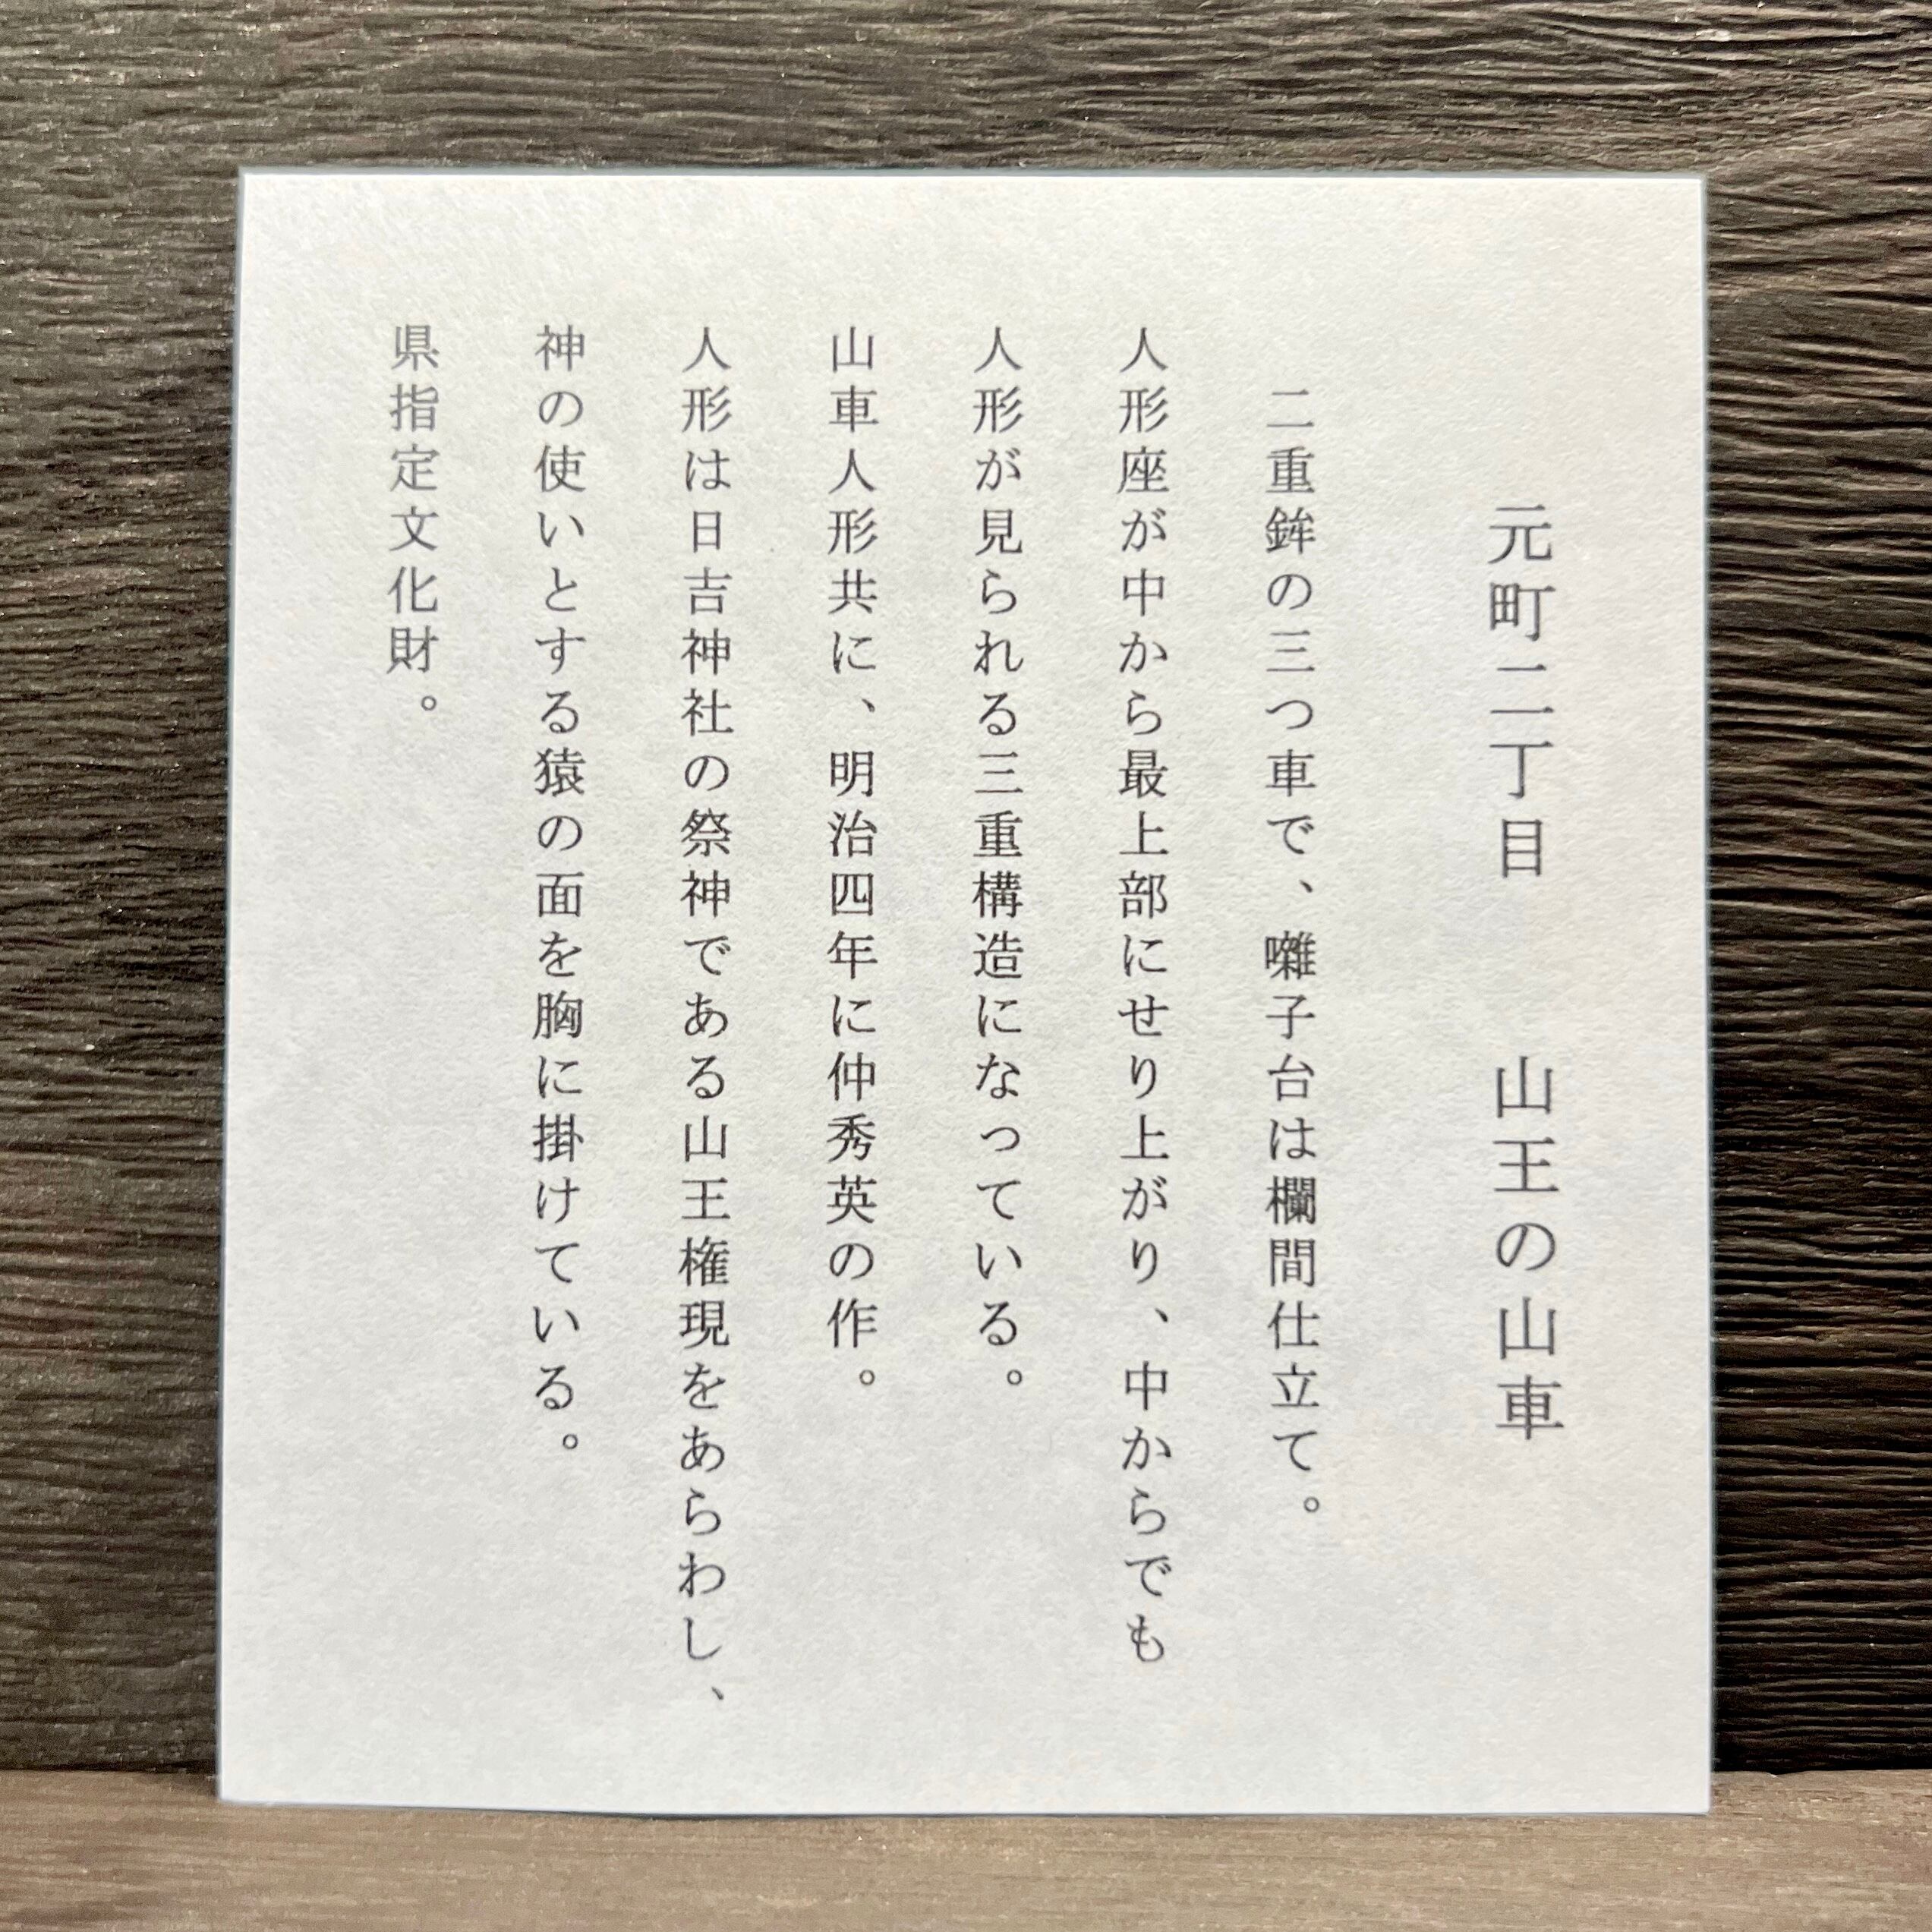 元町二丁目　山王の山車
二重鉾の三つ車で、囃子台は欄間仕立て。
人形座が中から最上部にせり上がり、中からでも
人形が見られる三重構造になっている。
山車人形共に、明治四年に仲秀英の作。
人形は日吉神社の祭神である山王権現をあらわし、
神の使いとする猿の面を胸に掛けている。
県指定文化財。